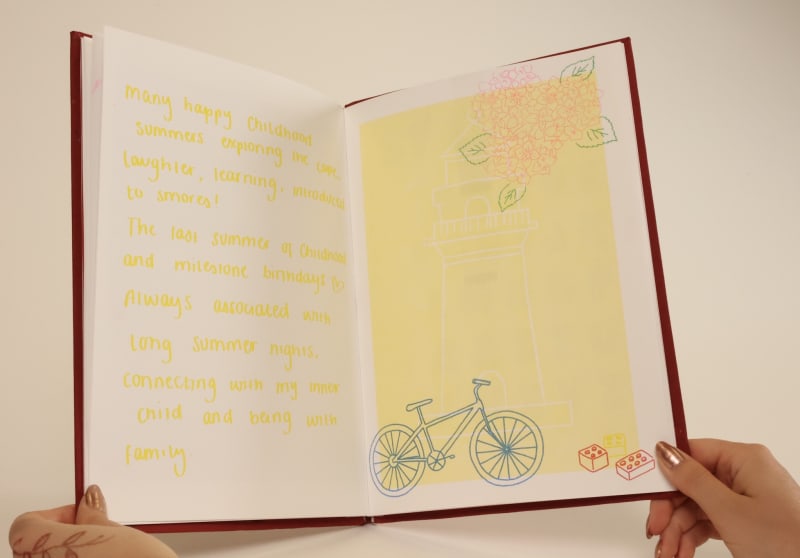 many happy childhood
summers exploring the cape.
Laughter, learning, introduced
to smores!
The last summer of childhood
and milestone birthdays
Always associated with
long summer nights.
connecting with my inner
child and being with
family